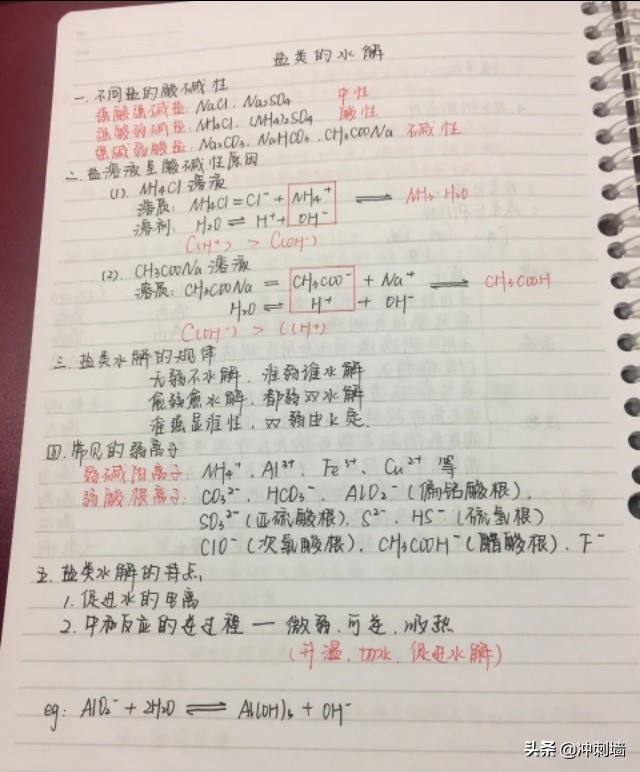 盐类的水解
一.不同盐的酸碱性
强酸强碱盐: NaCl. Na₂SO₄ 中性
强酸弱碱盐: NH₄Cl. (NH₄)₂SO₄ 酸性
强碱弱酸盐: Na₂CO₃. NaHCO₃. CH₃COONa 碱性
二.盐溶液呈酸碱性原因
(1). NH₄Cl 溶液
溶质: NH₄Cl = Cl⁻ + NH₄⁺ ⇌ NH₃·H₂O
溶剂: H₂O ⇌ H⁺ + OH⁻
C(H⁺) > C(OH⁻)
(2). CH₃COONa 溶液
溶质: CH₃COONa = CH₃COO⁻ + Na⁺ ⇌ CH₃COOH
H₂O ⇌ H⁺ + OH⁻
C(OH⁻) > C(H⁺)
三.盐类水解的规律
无弱不水解.谁弱谁水解
愈弱愈水解.都弱双水解
谁强显谁性.双弱由K定.
四.常见的弱离子
弱碱阳离子: NH₄⁺. Al³⁺. Fe³⁺. Cu²⁺ 等
弱酸根离子: CO₃²⁻. HCO₃⁻. AlO₂⁻(偏铝酸根).
SO₃²⁻(亚硫酸根). S²⁻. HS⁻(硫氢根)
ClO⁻(次氯酸根). CH₃COOH⁻(醋酸根). F⁻
五.盐类水解的特点
1.促进水的电离
2.中和反应的逆过程 — 微弱.可逆.吸热
(升温.加水.促进水解)
eg: AlO₂⁻ + 2H₂O ⇌ Al(OH)₃ + OH⁻
头条 @冲刺墙